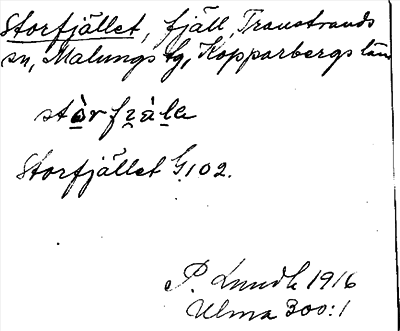 Storfjället, fjäll, Transtrands
sn, Malungs tg, Kopparbergs län
stɷ̀rfi̯àla
Storfjället G102.
P. Lundh 1916
Ulma 300:1